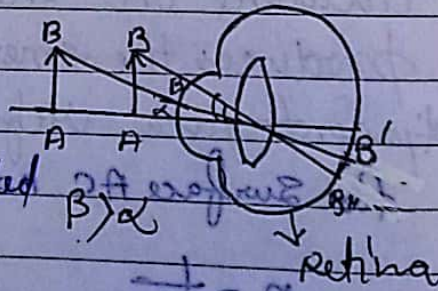 B B
β
α
A A
B'
B''
β>α
Retina